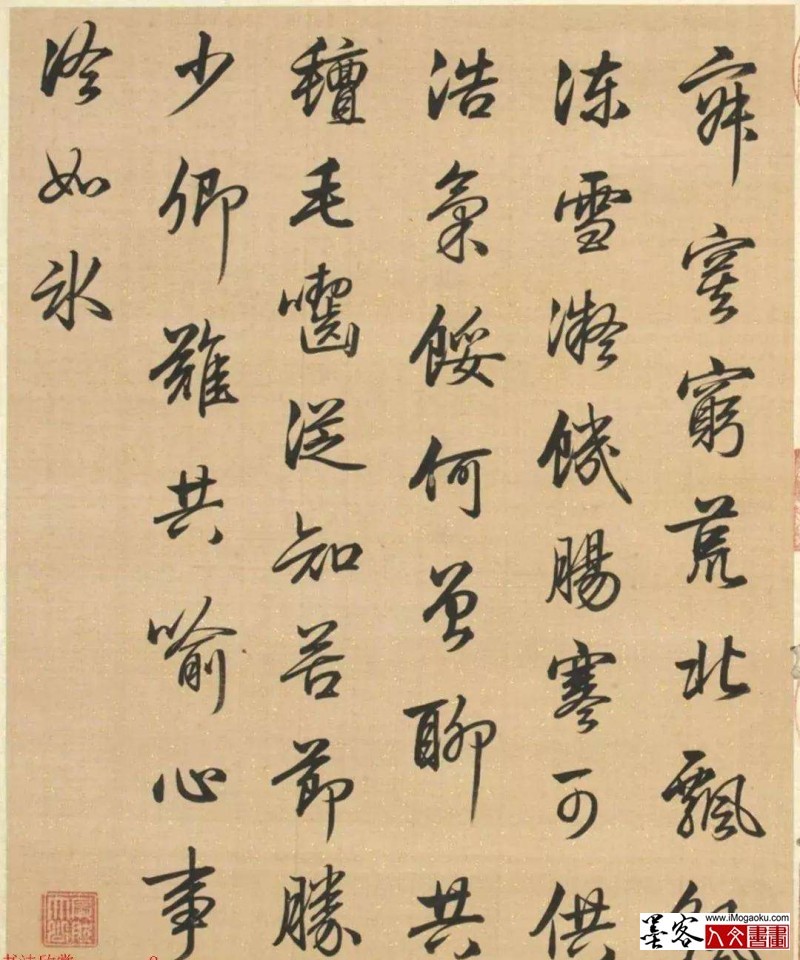 窮荒北飄
凍雪凝饑腸寒可供
浩氣餒何曾聊共
氊毛嚙從知苦節勝
少卿難共喻心事
冷如冰
墨客
www.iMogaoku.com
人文書畫